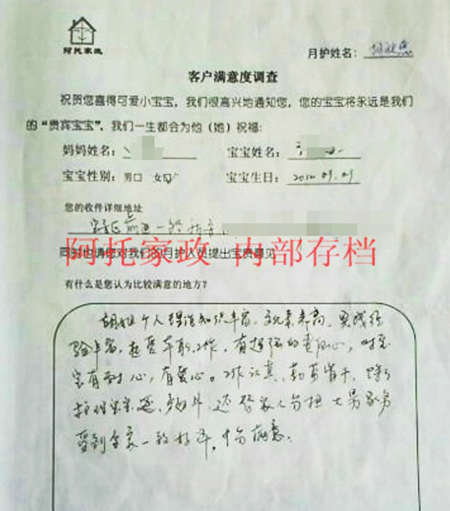 阿托家政
月护姓名:
客户满意度调查
祝贺您喜得可爱小宝宝,我们很高兴地通知您,您的宝宝将永远是我们
的“贵宾宝宝”,我们一生都会为他(她)祝福:
妈妈姓名: 宝宝姓名:
宝宝性别: 男口 女口 宝宝生日: 09.09
您的收件详细地址
阿托家政 内部存档
同时也请您对我们的月护人员提出宝贵意见
有什么是您认为比较满意的地方?
胡姐个人理论知识丰富、素养高,实践经
验丰富,热爱本职工作,有超强的责任心,对宝
宝有耐心,有爱心。工作认真,勤劳肯干,除了
护理宝宝 还替家人分担大量家务
受到全家一致好评,十分满意。